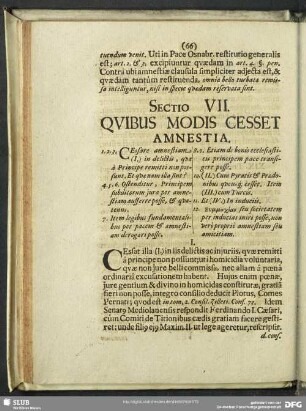 (66)
tuendum venit. Uti in Pace Osnabr. restitutio generalis
est; art. 2. & 3. excipiuntur quædam in art. 4. §. pen.
Contrà ubi amnestiæ clausula simpliciter adjecta est, &
quædam tantùm restituenda, omnia bello turbata remis-
sa intelliguntur, nisi in specie quædam reservata sint.
SECTIO VII.
QVIBUS MODIS CESSET
AMNESTIA.
1.2.3. CEssare amnestiam
(I.) in delictis, quæ
à Principe remitti non pos-
sunt, Et quænam illa sint?
4.5.6. Ostenditur, Principem
subditorum jura per amne-
stiam auferre posse, & qua-
tenus.
7. Item legibus fundamentali-
bus per pacem & amnesti-
am derogari posse.
8.9. Etiam de bonis ecclesiasti-
cis principem pace transi-
gere posse.
(II.) Cum Pyratis & Prædo-
nibus quoque cessare. Item
(III.) cum Turcis.
Et (IV.) In induciis.
seu societatem
per inducias iniri posse, non
veri proprii amnestiam seu
amnistiam.
I.
CEssat illa (I.) in iis delictis ac injuriis, quæ remitti
à principe non possunt; ut homicidia voluntaria,
quæ non jure belli commissa, nec aliam à pœna
ordinaria excusationem habent. Hujus enim pœnæ,
jure gentium & divino in homicidas constitutæ, gratiã
fieri non posse, integro consilio deducit Plotus, Comes
Pernati; quod est in tom. 2. Consil. Select. Cons. 75. Idem
Senatº Mediolanensis respondit Ferdinando I. Cæsari,
cùm Comiti de Titionibus cædis gratiam facere gesti-
ret: unde filio ejº Maxim. II. ut lege ageretur, rescripsit.
d. cons.
SLUB
DFG